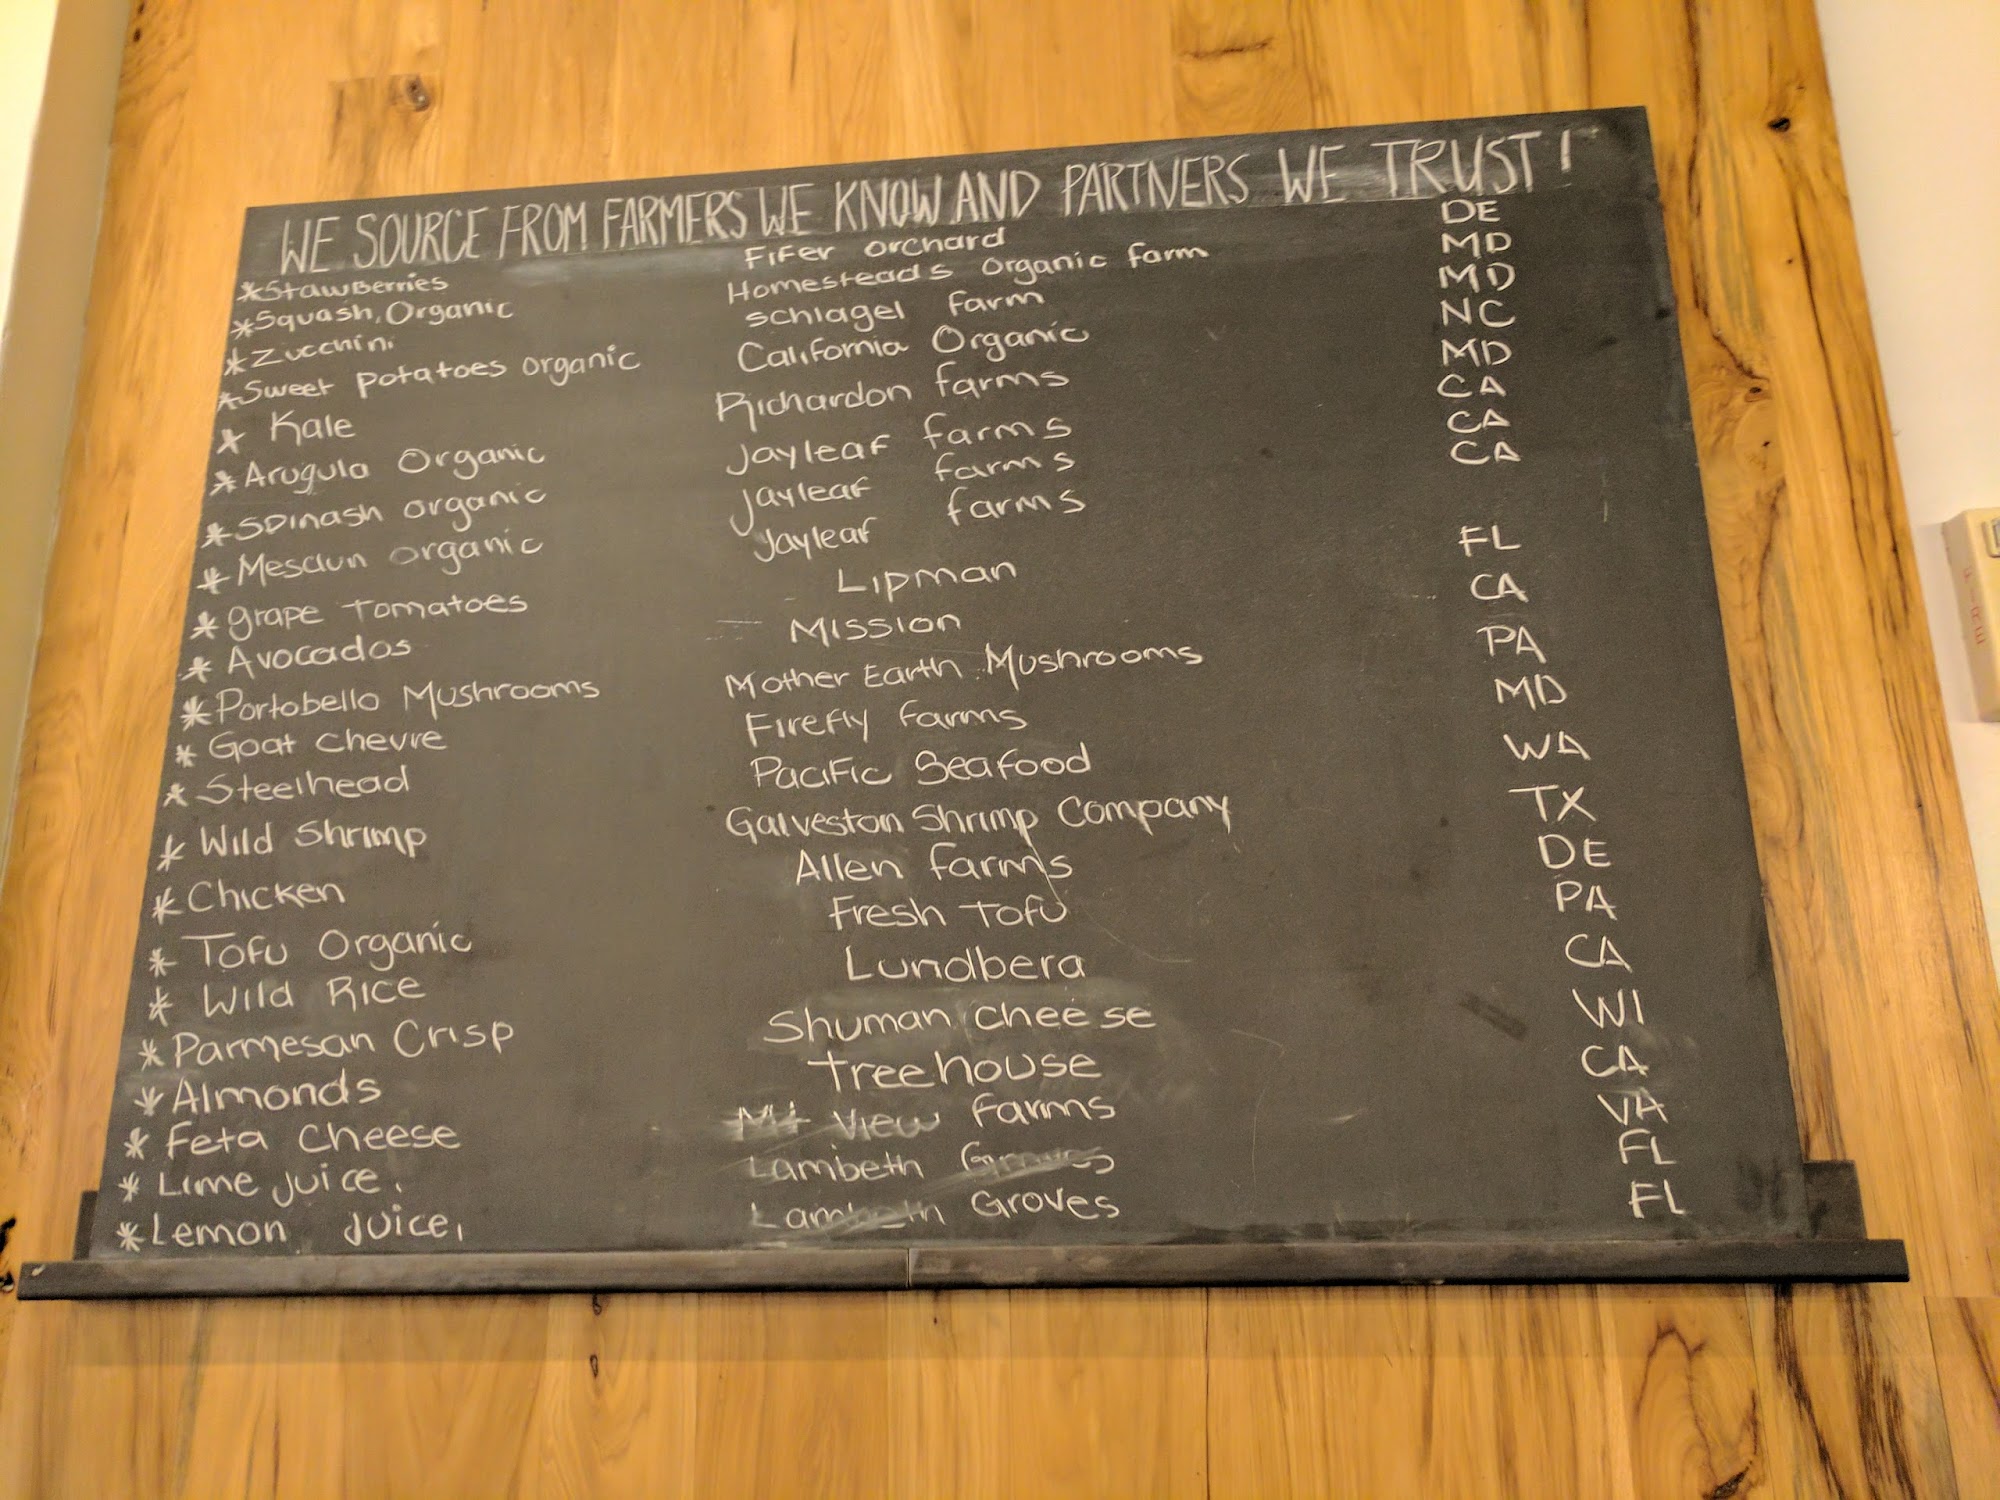 WE SOURCE FROM FARMERS WE KNOW AND PARTNERS WE TRUST!
*Stawberries Fifer orchard DE
*Squash, Organic Homesteads Organic farm MD
*Zucchini schlagel farm MD
*Sweet potatoes organic California Organic NC
* Kale Richardon farms MD
*Arugula Organic Jayleaf farms CA
*Spinash organic Jayleaf farms CA
* Mesclun organic Jayleaf farms CA
* grape tomatoes Lipman FL
* Avocados Mission CA
*Portobello Mushrooms Mother Earth Mushrooms PA
* Goat chevre Firefly farms MD
* Steelhead Pacific Seafood WA
* Wild Shrimp Galveston Shrimp Company TX
* Chicken Allen farms DE
* Tofu Organic Fresh Tofu PA
* Wild Rice Lundbera CA
*Parmesan Crisp Shuman cheese WI
*Almonds Treehouse CA
* Feta Cheese Mt View farms VA
* Lime juice. Lambeth Groves FL
*Lemon juice, Lambeth Groves FL